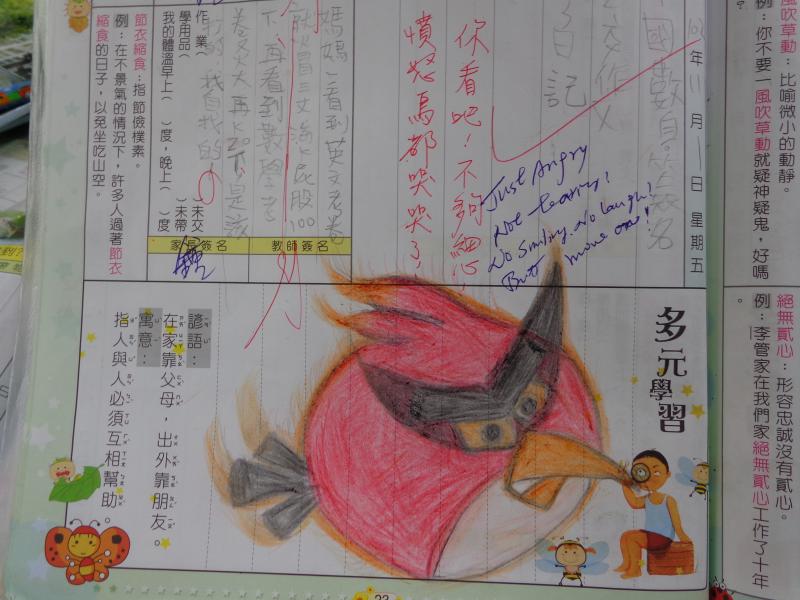 風吹草動：比喻微小的動靜。
例：你不要一風吹草動就疑神疑鬼，好嗎
？
絕無貳心：形容忠誠沒有貳心。
例：李管家在我們家絕無貳心工作了十年
。
年 11 月 1 日 星期五
國數自
簽名
作文
日記
Just Angry
Not tearing!
No Smiling, No laugh!
But move on!
你看吧！不夠細心，
憤怒鳥都哭哭了！
媽媽一看到英文考卷
火冒三丈 屁股100
下，再看到數學考
卷又 20下，是該
我自找的！
作業（ ）未交
學用品（ ）未帶
我的體溫早上（ ）度，晚上（ ）度
教師簽名
家長簽名
節衣縮食：指節儉樸素。
例：在不景氣的情況下，許多人過著節衣
縮食的日子，以免坐吃山空。
多元學習
諺語：
在家靠父母，出外靠朋友。
寓意：
指人與人必須互相幫助。
23